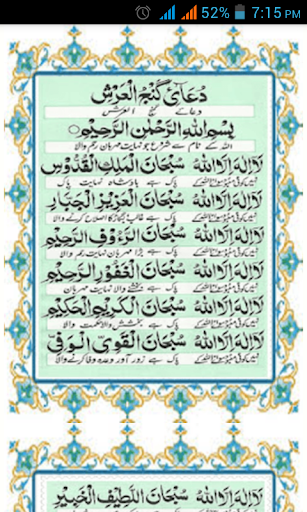 52% 7:15 PM
دُعَائے گَنجُ الْعَرْش
دعائے گنج العرش
بِسْمِ اللهِ الرَّحْمٰنِ الرَّحِيْمِ
اللہ کے نام سے شروع جو نہایت مہربان رحم والا
لَآ اِلٰهَ اِلَّا اللهُ سُبْحَانَ الْمَلِكِ الْقُدُّوْسِ
نہیں کوئی معبود سوا اللہ کے پاک ہے بادشاہ نہایت پاک
لَآ اِلٰهَ اِلَّا اللهُ سُبْحَانَ الْعَزِيْزِ الْجَبَّارِ
نہیں کوئی معبود سوا اللہ کے پاک ہے غالب بگاڑ کا اصلاح کرنے والا
لَآ اِلٰهَ اِلَّا اللهُ سُبْحَانَ الرَّءُوْفِ الرَّحِيْمِ
نہیں کوئی معبود سوا اللہ کے پاک ہے بڑا مہربان نہایت رحم والا
لَآ اِلٰهَ اِلَّا اللهُ سُبْحَانَ الْغَفُوْرِ الرَّحِيْمِ
نہیں کوئی معبود سوا اللہ کے پاک ہے بخشنے والا نہایت مہربان
لَآ اِلٰهَ اِلَّا اللهُ سُبْحَانَ الْكَرِيْمِ الْحَكِيْمِ
نہیں کوئی معبود سوا اللہ کے پاک ہے بخشش والا حکمت والا
لَآ اِلٰهَ اِلَّا اللهُ سُبْحَانَ الْقَوِيِّ الْوَفِيِّ
نہیں کوئی معبود سوا اللہ کے پاک ہے زور آور وعدہ وفا کرنے والا
لَآ اِلٰهَ اِلَّا اللهُ سُبْحَانَ اللَّطِيْفِ الْخَبِيْرِ